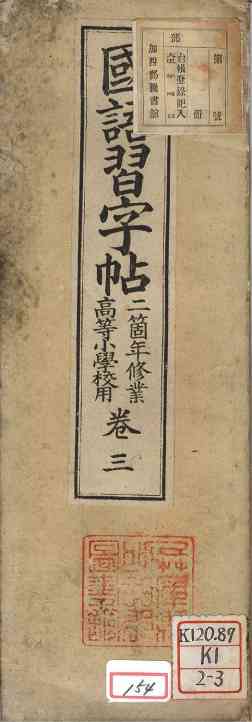 國語習字帖
二箇年修業
高等小學校用
卷三
部
第 號
冊
台帳登錄記入
加西郡圖書館
K120.89
K1
2-3
154